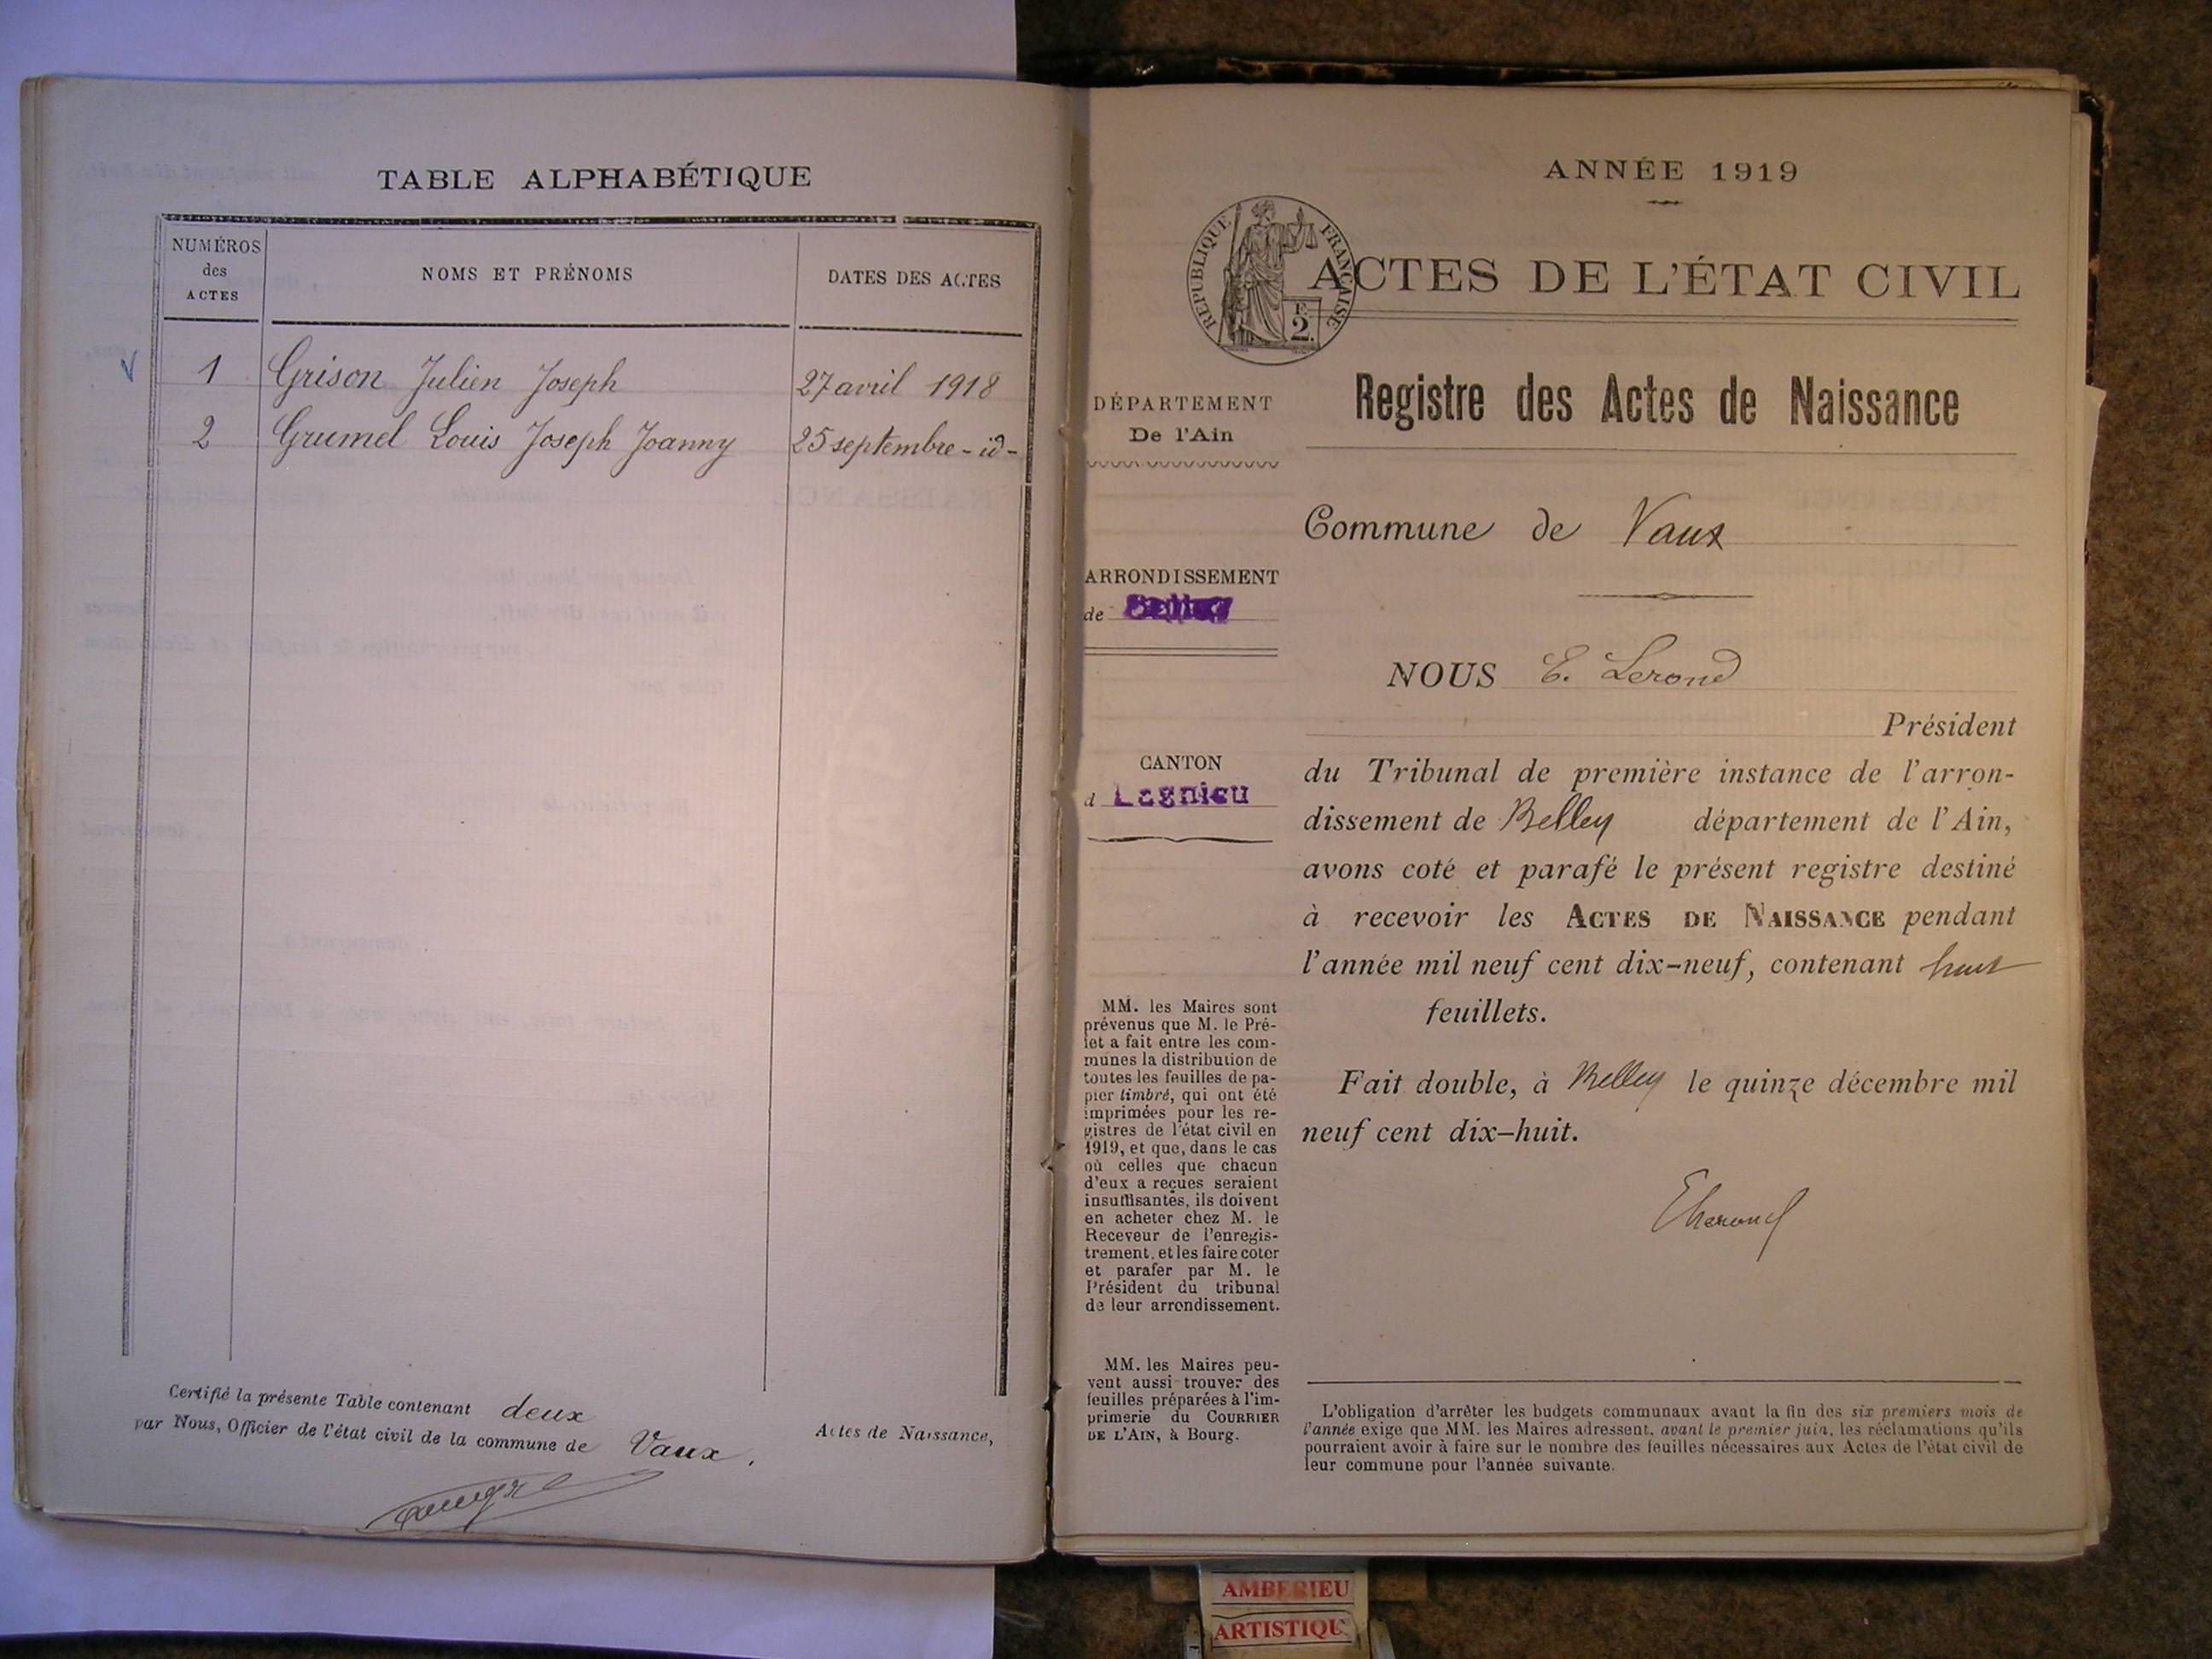 TABLE ALPHABÉTIQUE
NUMÉROS
des
ACTES
NOMS ET PRÉNOMS
DATES DES ACTES
1 Grison Julien Joseph 27 avril 1918
2 Grumel Louis Joseph Joanny 25 septembre - id -
Certifié la présente Table contenant deux
Actes de Naissance,
par Nous, Officier de l'état civil de la commune de Vaux.
ANNÉE 1919
RÉPUBLIQUE FRANÇAISE
F.
2.
ACTES DE L'ÉTAT CIVIL
Registre des Actes de Naissance
DÉPARTEMENT
De l'Ain
ARRONDISSEMENT
de Belley
CANTON
d Lagnieu
MM. les Maires sont
prévenus que M. le Pré-
fet a fait entre les com-
munes la distribution de
toutes les feuilles de pa-
pier timbré, qui ont été
imprimées pour les re-
gistres de l'état civil en
1919, et que, dans le cas
où celles que chacun
d'eux a reçues seraient
insuffisantes, ils doivent
en acheter chez M. le
Receveur de l'enregis-
trement, et les faire coter
et parafer par M. le
Président du tribunal
de leur arrondissement.
MM. les Maires peu-
vent aussi trouver des
feuilles préparées à l'im-
primerie du COURRIER
DE L'AIN, à Bourg.
Commune de Vaux
NOUS E. Lerond
Président
du Tribunal de première instance de l'arron-
dissement de Belley département de l'Ain,
avons coté et parafé le présent registre destiné
à recevoir les ACTES DE NAISSANCE pendant
l'année mil neuf cent dix-neuf, contenant huit
feuillets.
Fait double, à Belley le quinze décembre mil
neuf cent dix-huit.
ELerond
L'obligation d'arrêter les budgets communaux avant la fin des six premiers mois de
l'année exige que MM. les Maires adressent, avant le premier juin, les réclamations qu'ils
pourraient avoir à faire sur le nombre des feuilles nécessaires aux Actes de l'état civil de
leur commune pour l'année suivante.
AMBERIEU
ARTISTIQU